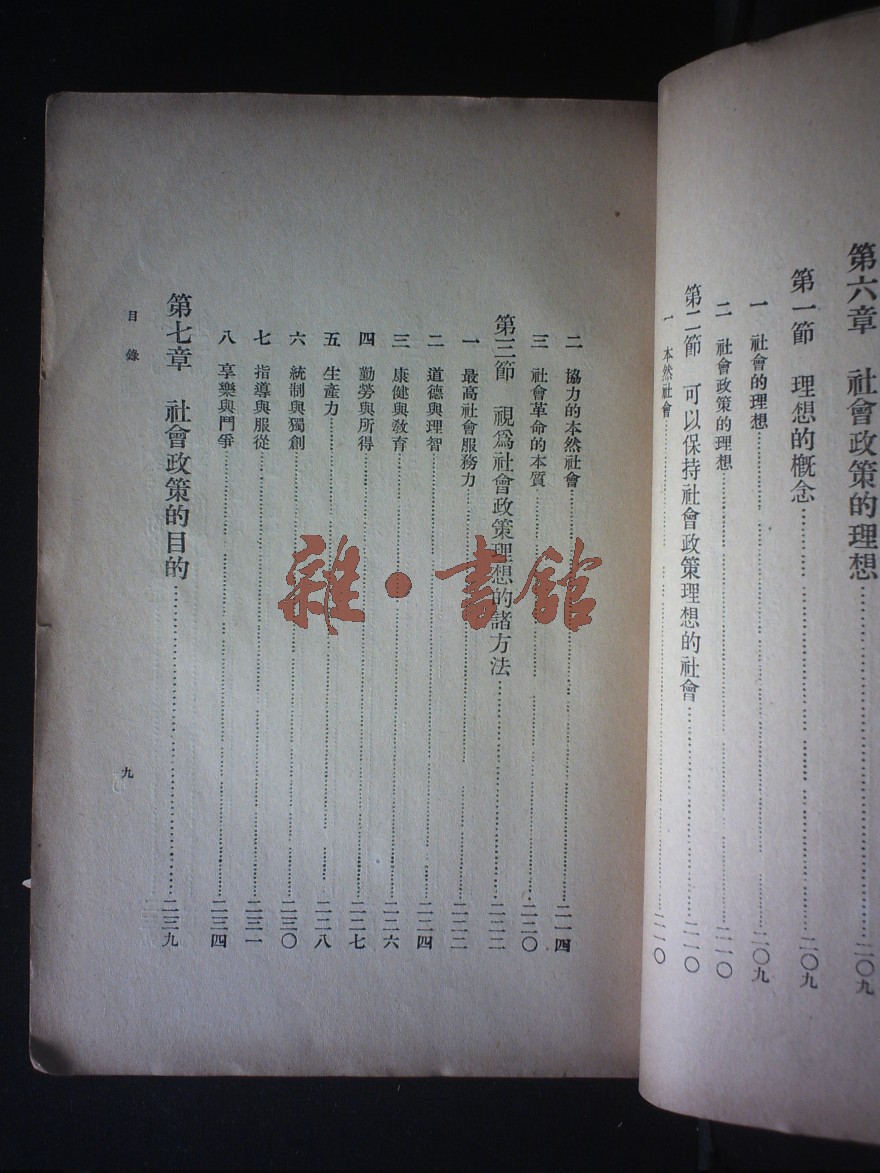 第六章　社會政策的理想……二〇九
第一節　理想的概念……二〇九
一　社會的理想……二〇九
二　社會政策的理想……二一〇
第二節　可以保持社會政策理想的社會……二一〇
一　本然社會……二一〇
二　協力的本然社會……二一四
三　社會革命的本質……二二〇
第三節　視爲社會政策理想的諸方法……二二二
一　最高社會服務力……二二二
二　道德與理智……二二四
三　康健與教育……二二六
四　勤勞與所得……二二七
五　生產力……二二八
六　統制與獨創……二三〇
七　指導與服從……二三一
八　享樂與鬥爭……二三四
第七章　社會政策的目的……二三九
目錄
九
雜·書館